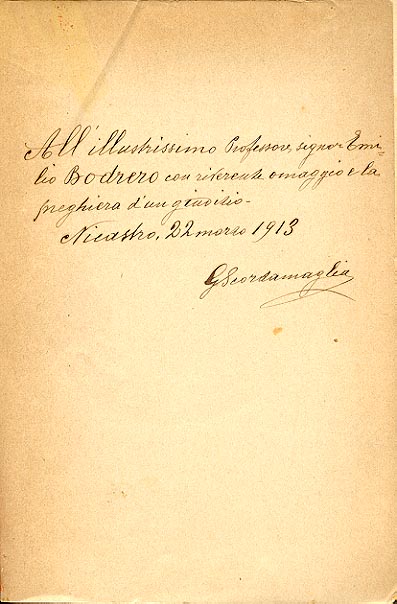 All'illustrissimo Professore, signor Emi-
lio Bodrero con riverente omaggio e la
preghiera d'un giudizio -
Nicastro, 22 marzo 1913
GScordamaglia